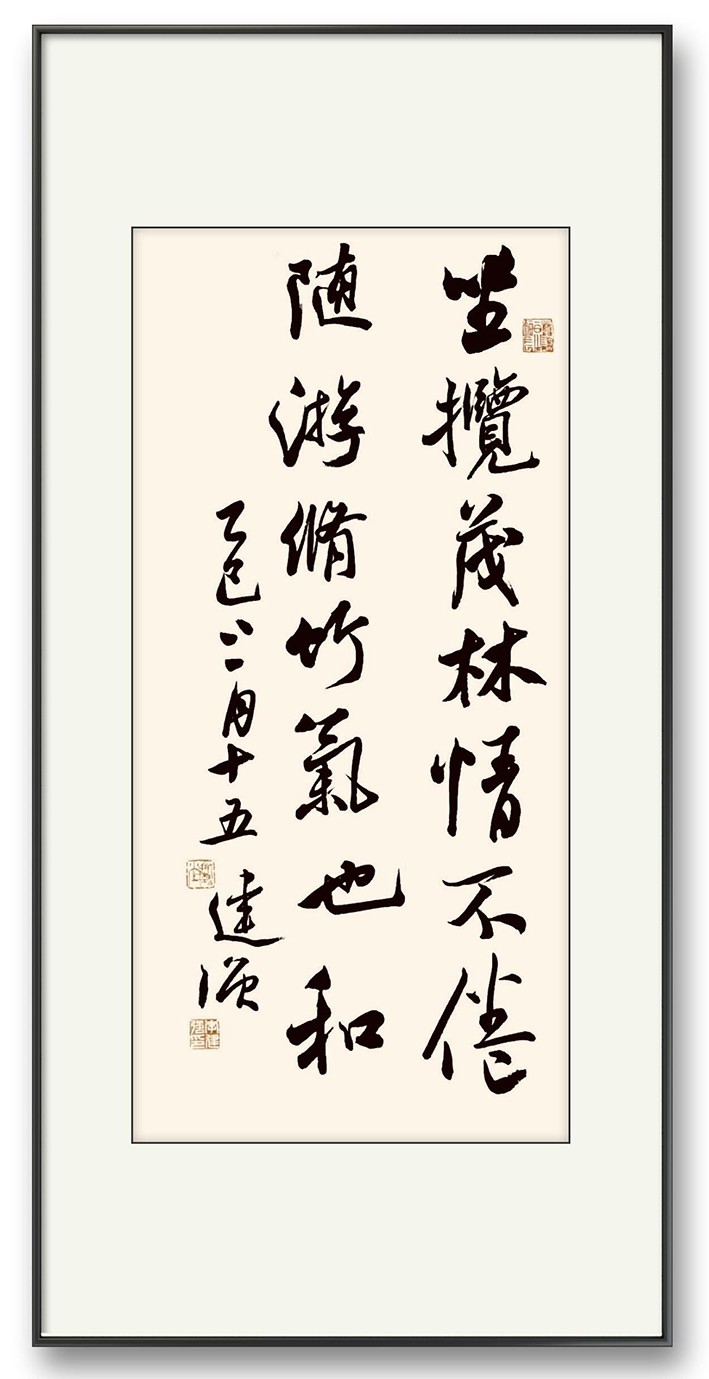 坐攬茂林情不倦
随游脩竹氣也和
乙巳月十五
建